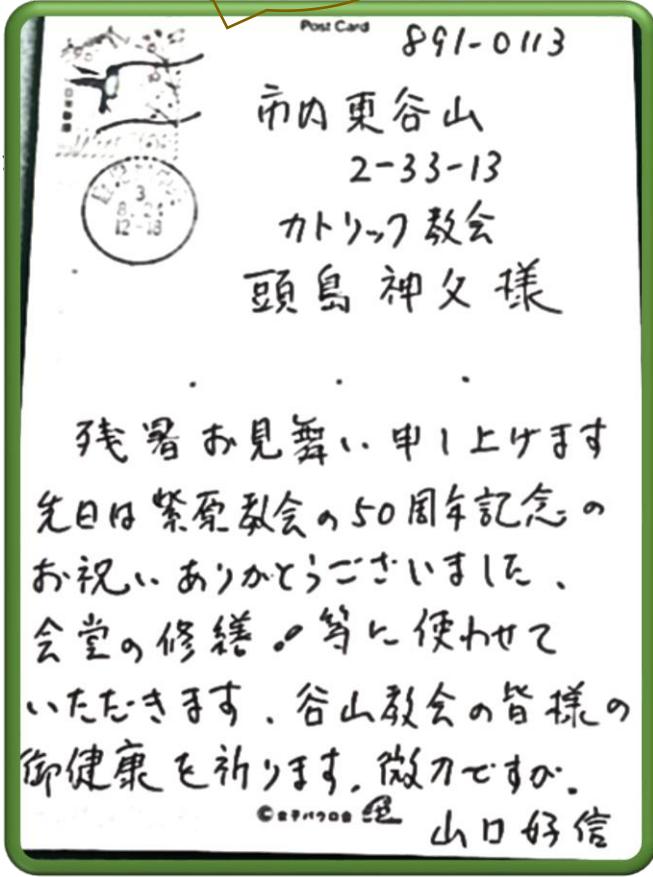 Post Card
891-0113
市内東谷山
2-33-13
カトリック教会
頭島神父様
3
12-18
残暑お見舞い申し上げます
先日は紫原教会の50周年記念の
お祝いありがとうございました、
会堂の修繕等に使わせて
いただきます、谷山教会の皆様の
御健康を祈ります。微力ですが。
©女子パウロ会
山口好信